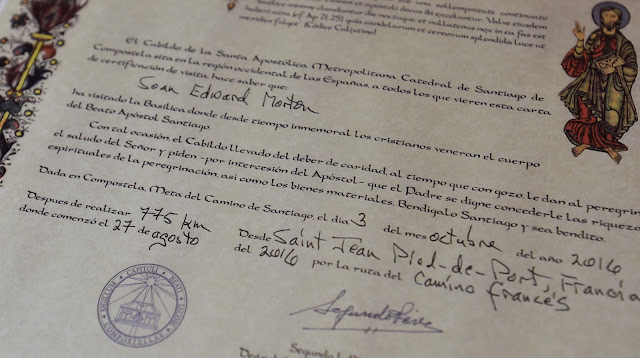 una sollempnitate continuato
et apostoli decus ibi excoluntur. Valve eiusdem
basilice minime clauduntur die noctuque, et nullatenus nox in ea fas est
haberi atra, (cf Ap 21, 25) quia candelarum et cereorum splendida luce ut
meridies fulget (Códice Calixtino)
El Cabildo de la Santa Apostólica Metropolitana Catedral de Santiago de
Compostela sita en la región occidental de las Españas, a todos los que vieren esta carta
de certificación de visita, hace saber que:
Sean Edward Morton
ha visitado la Basílica donde desde tiempo inmemorial los cristianos veneran el cuerpo
del Beato Apóstol Santiago.
Con tal ocasión el Cabildo llevado del deber de caridad, al tiempo que con gozo, le dan al peregrino
el saludo del Señor y piden -por intercesión del Apóstol- que el Padre se digne concederle las riquezas
espirituales de la peregrinación, así como los bienes materiales. Bendígalo Santiago y sea bendito.
Dada en Compostela, Meta del Camino de Santiago, el día 3 del mes octubre del año 2016
Despues de realizar 775 km Desde Saint Jean Pied-de-Port, Francia
donde comenzó el 27 de agosto del 2016 por la ruta del Camino Francés
Segundo L.